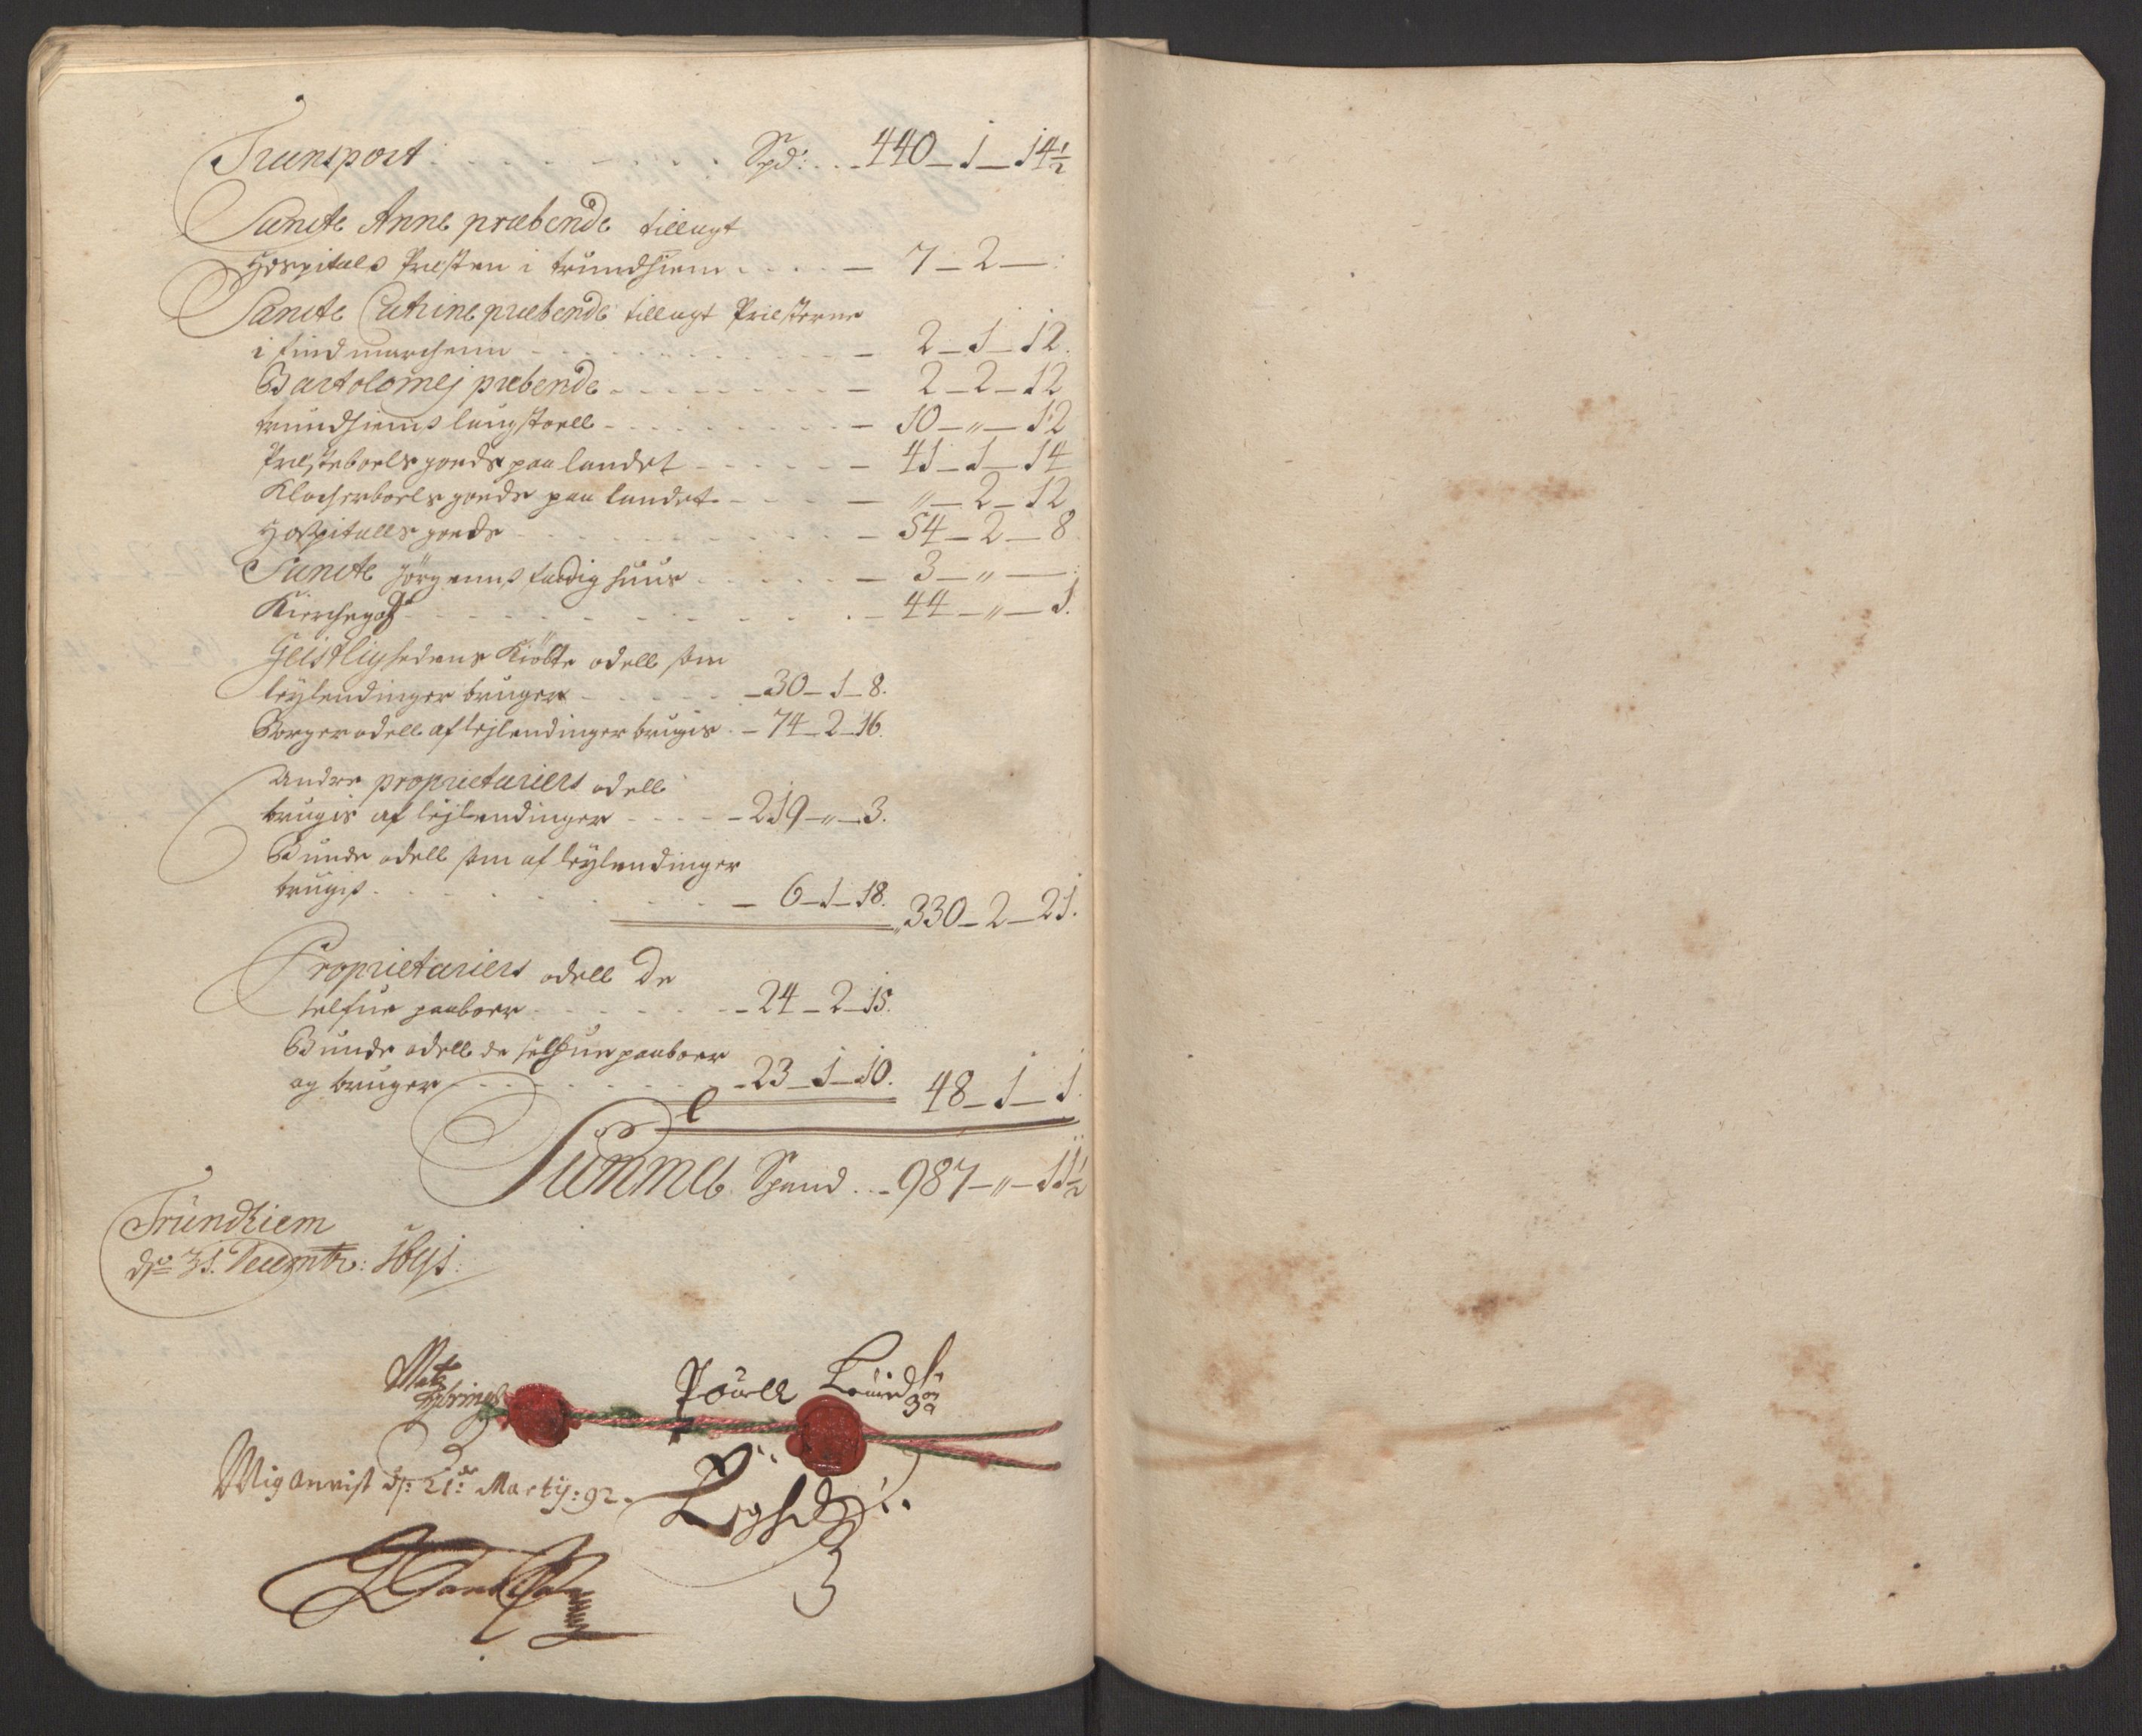 Transport . . . Spd: . . 440 – 1 – 14½
Sancte Anne præbende tillagt
Hospitals Presten i Trundhiem . . . . – 7 – 2 – :
Sancte Catrine præbende tillagt Presterne
i findmarchenn – 2 – 1 – 12.
Bartolomej præbende – 2 – 2 – 12
trundhiems laugstoell – 10 – „ – 12
Presteboels goeds paa landet – 41 – 1 – 14
Klocherboels goeds paa landet – „ – 2 – 12
Hospitalls goeds – 54 – 2 – 8
Sancte Jörgenns fattig huus – 3 – „ – :
Kierchegotz – 44 – „ – 1.
Geistlighedens Kiöbte odell som
leylendinger bruger – 30 – 1 – 8.
Borger odell af lejlendinger brugis – 74 – 2 – 16.
Andre proprietariers odell
brugis af lejlendinger – 219 – „ – 3.
Bunde odell som af leylendinger
brugis – 6 – 1 – 18. 330 – 2 – 21.
Proprietariers odell de
selfue paaboer – 24 – 2 – 15.
Bunde odell de selfue paaboer
og bruger – 23 – 1 – 10. 48 – 1 – 1.
Summa Spand . . – 987 – „ – 11½
Trundhiem
dn 31. Decembr: 1691.
Powell
Mig anvist d: 21de Martij: 92.